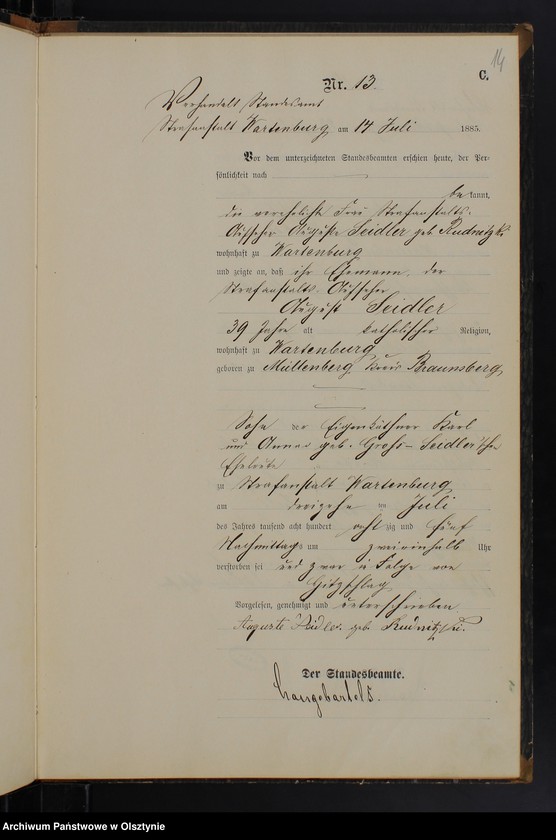 14
C.
Nr. 13.
Verhandelt Standesamt
Strafanstalt Wartenburg am 14 Juli 1885.
Vor dem unterzeichneten Standesbeamten erschien heute, der Per-
sönlichkeit nach
be kannt,
die verehelichte Frau Strafanstalts-
Aufseher Auguste Seidler geb. Rudnitzki
wohnhaft zu Wartenburg
und zeigte an, daß ihr Ehemann, der
Strafanstalts-Aufseher
August Seidler
39 Jahre alt katholischer Religion,
wohnhaft zu Wartenburg,
geboren zu Müllenberg, Kreis Braunsberg,
Sohn der Eigenkäthner Karl
und Anna geb. Groß- Seidler'schen
Eheleute
zu Strafanstalt Wartenburg
am dreizehn ten Juli
des Jahres tausend acht hundert acht zig und fünf
Nachmittags um zweieinhalb Uhr
verstorben sei und zwar in Folge von
Hitzschlag
Vorgelesen, genehmigt und unterschrieben
Auguste Seidler. geb. Rudnitzki.
Der Standesbeamte.
Archiwum Państwowe w Olsztynie